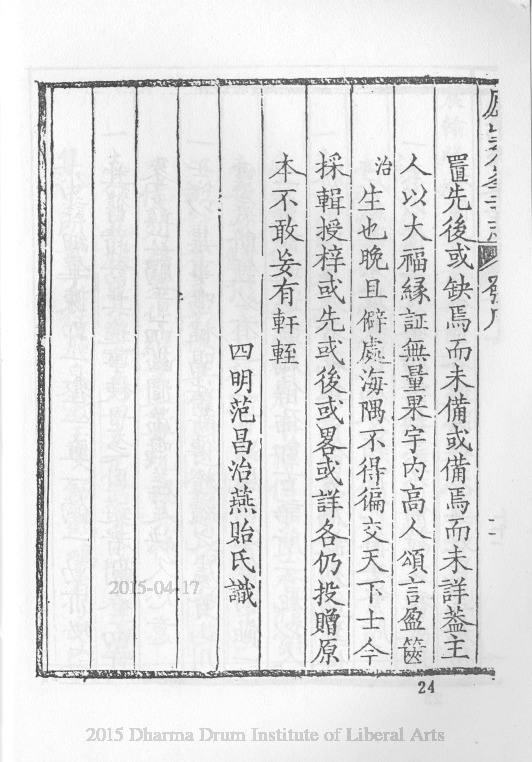 置先後或缺焉而未備或備焉而未詳葢主
人以大福縁証無量果宇内高人頌言盈篋
治生也晚且僻處海隅不得徧交天下士今
採輯授梓或先或後或畧或詳各仍投贈原
本不敢妄有軒輊
四明范昌治燕貽氏識
2015-04-17
24
2015 Dharma Drum Institute of Liberal Arts